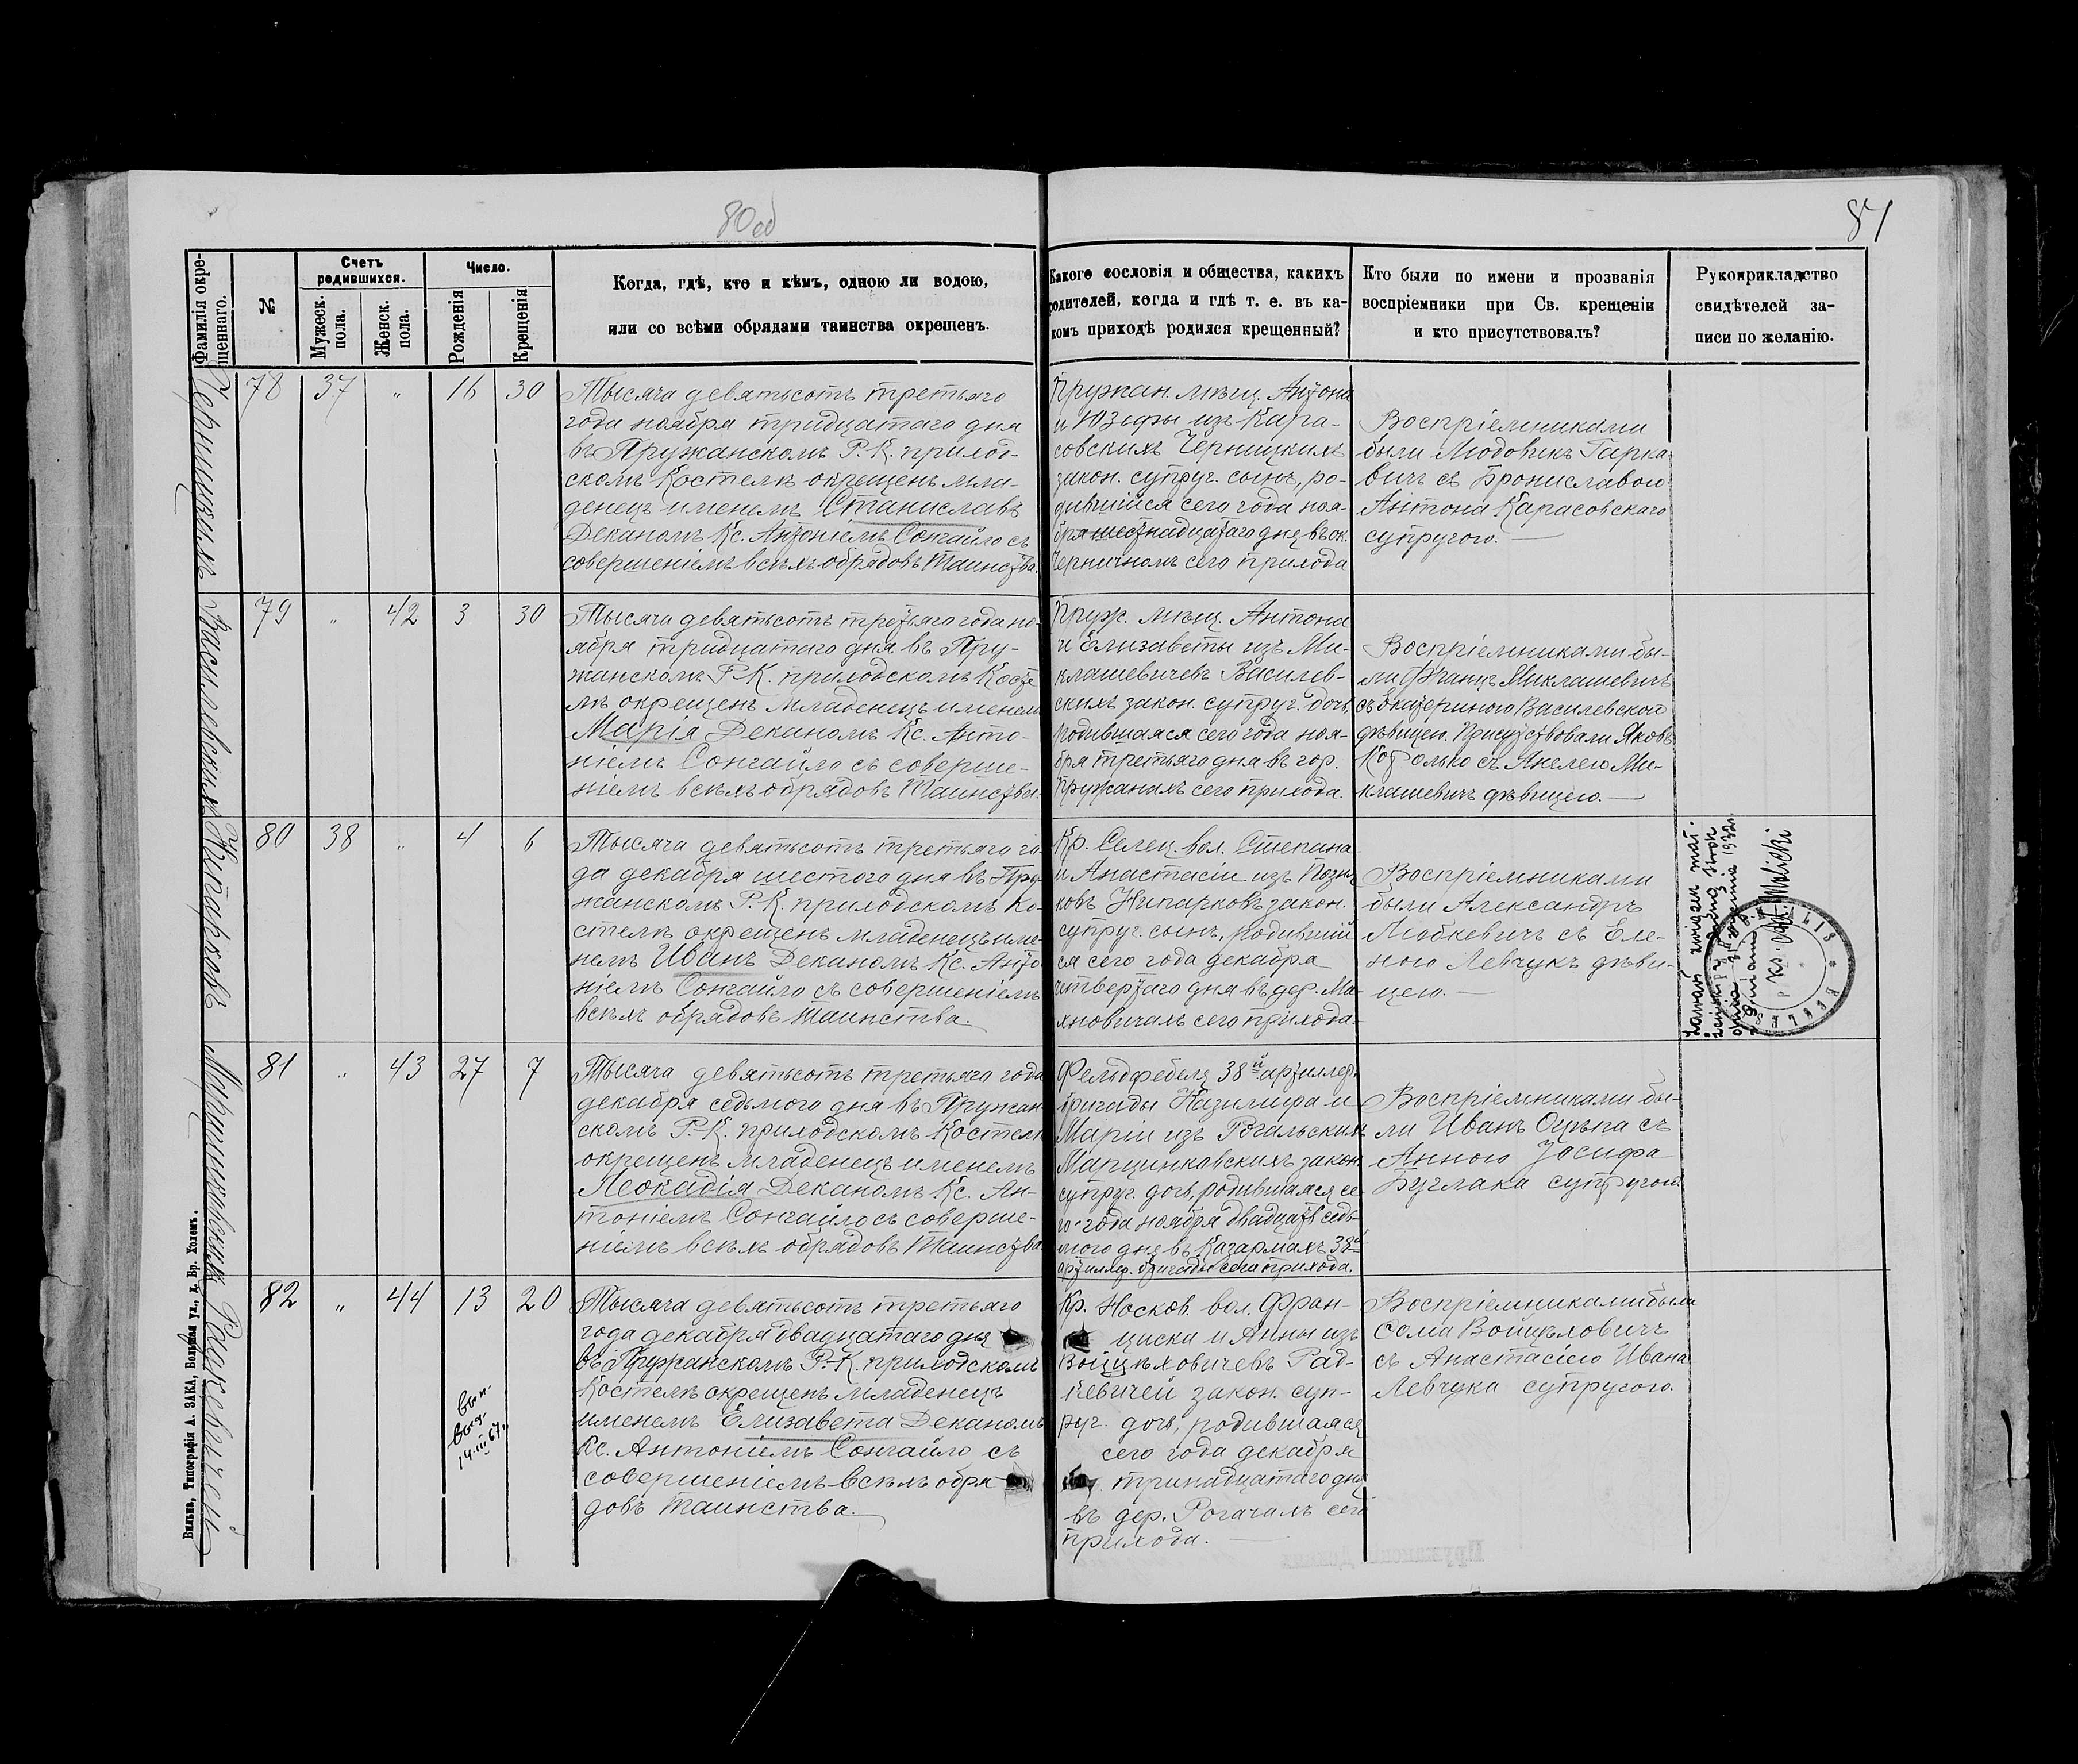 80 об
81
Фамилія окре-
щеннаго.
№
Счетъ
родившихся.
Мужеск.
пола.
Женск.
пола.
Число.
Рожденія
Крещенія
Когда, гдѣ, кто и кѣмъ, одною ли водою,
или со всѣми обрядами таинства окрещенъ.
Какого сословія и общества, какихъ
родителей, когда и гдѣ т. е. въ ка-
комъ приходѣ родился крещенный?
Кто были по имени и прозванія
воспріемники при Св. крещеніи
и кто присутствовалъ?
Рукоприкладство
свидѣтелей за-
писи по желанію.
Черницкихъ
78
37
"
16
30
Тысяча девятьсотъ третьяго
года ноября тридцатаго дня
въ Пружанскомъ Р. К. приход-
скомъ Костелѣ окрещенъ мла-
денецъ именемъ Станиславъ
Деканомъ Кс. Антоніемъ Сонгайло съ
совершеніемъ всѣхъ обрядовъ Таинства.
Пружан. мѣщ. Антона
и Юзефы изъ Кара-
совскихъ Черницкихъ
закон. супруг. сынъ, ро-
дившійся сего года ноя-
бря шестнадцатаго дня въ ок.
Черничномъ сего прихода
Воспріемниками
были Людовикъ Гарка-
вичъ съ Брониславою
Антона Карасовскаго
супругою.
Василевскихъ
79
"
42
3
30
Тысяча девятьсотъ третьяго года но-
ября тридцатаго дня въ Пру-
жанскомъ Р. К. приходскомъ Косте
лѣ окрещенъ младенецъ именемъ
Марія Деканомъ Кс. Анто-
ніемъ Сонгайло съ соверше-
ніемъ всѣхъ обрядовъ Таинства.
Пруж. мѣщ. Антона
и Елизаветы изъ Ми-
клашевичевъ Василев-
скихъ закон. супруг. дочь,
родившаяся сего года ноя-
бря третьяго дня въ гор.
Пружанахъ сего прихода.
Воспріемниками бы-
ли Францъ Миклашевичъ
съ Екатериною Василевской
дѣвицею. Присутствовали Яковъ
съ Анелею Ми-
клашевичъ дѣвицею.
Нипарковъ
80
38
"
4
6
Тысяча девятьсотъ третьяго го-
да декабря шестого дня въ Пру-
жанскомъ Р. К. приходскомъ Ко-
стелѣ окрещенъ младенецъ име-
немъ Иванъ Деканомъ Кс. Анто
ніемъ Сонгайло съ совершеніемъ
всѣхъ обрядовъ Таинства.
Кр. Селец. вол. Степана
и Анастасіи изъ Позня
ковъ Нипарковъ закон.
супруг. сынъ, родившій
ся сего года декабря
четвертаго дня въ дер. Ма-
хновичахъ сего прихода.
Воспріемниками
были Александръ
Любкевичъ съ Еле-
ною Левчукъ дѣви-
цею.
Zawarł związek mał-
1932 r.
ks.
Марцинкавскихъ
81
"
43
27
7
Тысяча девятьсотъ третьяго года
декабря седьмого дня въ Пружан-
скомъ Р. К. приходскомъ Костелѣ
окрещенъ младенецъ именемъ
Леокадія Деканомъ Кс. Ан-
тоніемъ Сонгайло съ соверше-
ніемъ всѣхъ обрядовъ Таинства
Фельдфебеля 38й артиллер.
бригады Казиміра и
Маріи изъ Рогальскихъ
Марцинкавскихъ закон.
супруг. дочь, родившаяся се
го года ноября двадцать седь-
мого дня въ Казармахъ 38й
артиллер. бригады сего прихода.
Воспріемниками бы-
ли Иванъ Оцѣпа съ
Анною Іосифа
Буглака супругой
Радкевичей
82
"
44
13
20
вып.
выд.
14.III.67г.
Тысяча девятьсотъ третьяго
года декабря двадцатаго дня
въ Пружанскомъ Р. К. приходскомъ
Костелѣ окрещенъ младенецъ
именемъ Елизавета Деканомъ
Кс. Антоніемъ Сонгайло съ
совершеніемъ всѣхъ обря
довъ таинства.
Кр. Носков. вол. Фран-
циска и Анны изъ
Войцѣховичевъ Рад-
кевичей закон. суп-
руг. дочь, родившаяся
сего года декабря
тринадцатаго дня
въ дер. Рогачахъ сего
прихода.
Воспріемниками были
Сома Войцѣховичъ
съ Анастасіею Ивана
Левчука супругою.
Вильна, Типографія А. ЗАКА, Большая ул., д. Бр. Холемъ.